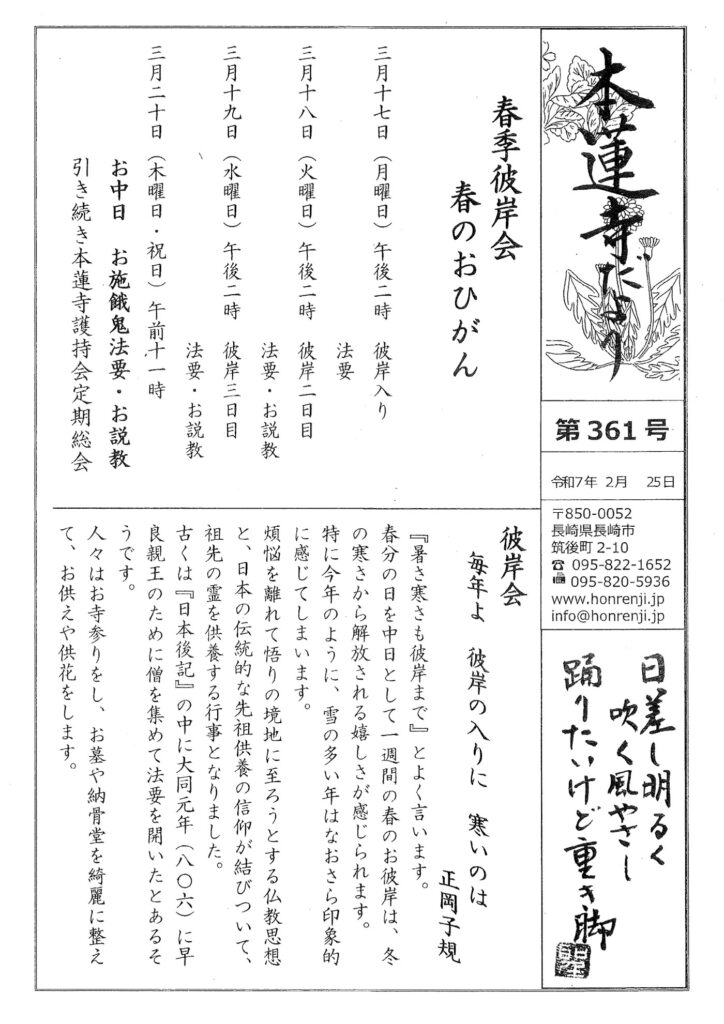 本蓮寺だより
第361号
令和7年 2月 25日
〒850-0052
長崎県長崎市
筑後町 2-10
☎ 095-822-1652
📠 095-820-5936
www.honrenji.jp
info@honrenji.jp
日差し明るく
吹く風やさし
踊りたいけど重き脚
春季彼岸会
春のおひがん
三月十七日（月曜日）午後二時 彼岸入り
法要
三月十八日（火曜日）午後二時 彼岸二日目
法要・お説教
三月十九日（水曜日）午後二時 彼岸三日目
法要・お説教
三月二十日（木曜日・祝日）午前十一時
お中日 お施餓鬼法要・お説教
引き続き本蓮寺護持会定期総会
彼岸会
毎年よ 彼岸の入りに 寒いのは
正岡子規
『暑さ寒さも彼岸まで』とよく言います。
春分の日を中日として一週間の春のお彼岸は、冬
の寒さから解放される嬉しさが感じられます。
特に今年のように、雪の多い年はなおさら印象的
に感じてしまいます。
煩悩を離れて悟りの境地に至ろうとする仏教思想
と、日本の伝統的な先祖供養の信仰が結びついて、
祖先の霊を供養する行事となりました。
古くは『日本後記』の中に大同元年（八〇六）に早
良親王のために僧を集めて法要を開いたとあるそ
うです。
人々はお寺参りをし、お墓や納骨堂を綺麗に整え
て、お供えや供花をします。